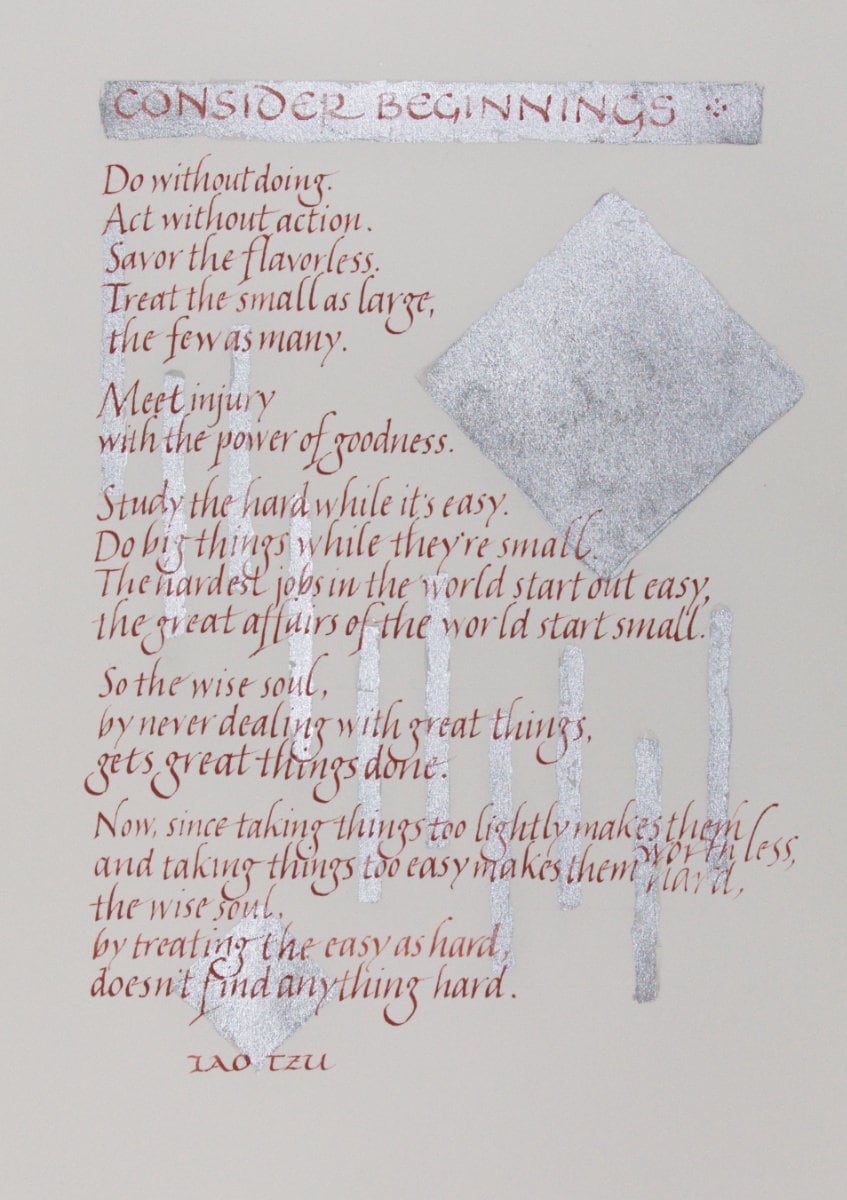 CONSIDER BEGINNINGS
Do without doing.
Act without action.
Savor the flavorless.
Treat the small as large,
the few as many.
Meet injury
with the power of goodness.
Study the hard while it's easy.
Do big things while they're small.
The hardest jobs in the world start out easy,
the great affairs of the world start small.
So the wise soul,
by never dealing with great things,
gets great things done.
Now, since taking things too lightly makes them worthless,
and taking things too easy makes them hard,
the wise soul,
by treating the easy as hard,
doesn't find anything hard.
LAO TZU